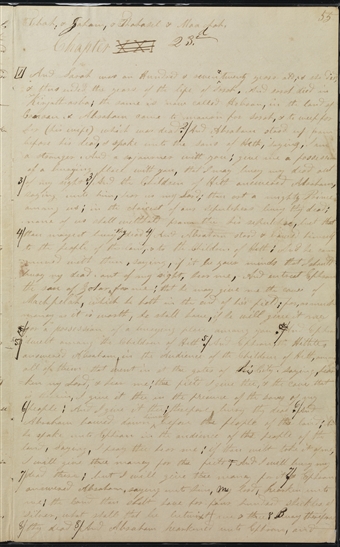 Tebah, & Gaham, & Thahash, & Maachah.
55
Chapter XX 23rd
And Sarah was an hundred & seven & twenty years old, &
these were the years of the life of Sarah, And Sarah died in
Kirjath-arba; the same is now called Hebron, in the land of
Canaan: & Abraham came to mourn for Sarah, & to weep for
her (his wife) which was dead; 2/ And Abraham stood up from
before his dead, & spake unto the sons of Heth, saying, I am
a stranger and a sojourner with you; give me a possession
of a burying place with you, that I may bury my dead out
3/ of my sight; 3/ And the Children of Heth answered Abraham,
saying unto him, hear us my Lord; thou art a mighty Prince
among us; in the choicest of our sepulchres bury thy dead;
none of us shall withhold from thee his sepulchre, but that
4/ thou mayest bury thy dead; 4/ And Abraham stood & bowed himself
to the people of the land, & to the Children of Heth; & he
communed with them, saying, if it be your minds that I should
bury my dead out of my sight, hear me, And entreat Ephron
the son of Zohar, for me; that he may give me the cave of
Machpelah, which he hath in the end of his field; for as much
money as it is worth, he shall have, if he will give it me
for a possession of a burying place amongst you: for Ephron
dwelt among the Children of Heth; 5/ And Ephron the Hittite
answered Abraham, in the audience of the Children of Heth, even
all of them that went in at the gates of his city, saying,
hear my Lord, & hear me; the field I give thee, & the cave that
is therein, I give it thee in the presence of the sons of my
6/ people; And I give it thee; therefore bury thy dead; 6/ And
Abraham bowed down before the people of the land; &
he spake unto Ephron in the audience of the people of the
land, saying, I pray thee hear me; if thou wilt take it of me,
I will give thee money for the field; And I will bury my
7/ dead there; but I will give thee money for it; 7/ Ephron
answered Abraham, saying unto him, My Lord, hearken unto
me; the land thou shalt have for four hundred shekels of
silver, what shall that be between me & thee; bury therefore
8/ thy dead; 8/ And Abraham hearkened unto Ephron, and